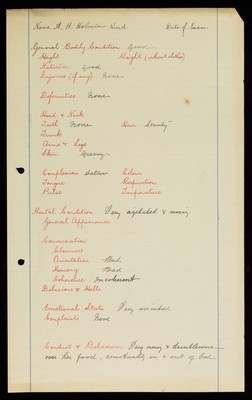 Name A. H. Date of Exam
General Bodily Condition Good
Height Weight (without clothes)
Nutrition Good
Injuries (if any) None
Deformities None
Head & Neck
Teeth None Hair Scanty
Trunk
Arms & Legs
Skin Greasy
Complexion Sallow Colour
Tongue Respiration
Pulse Temperature
Mental Condition Very agitated & noisy
General Appearance
Conversation
Clearness
Orientation Bad
Memory Bad
Coherence Incoherent
Delusions & Halls.
Emotional State Very
Complaints None
Conduct & Behaviour Very noisy & troublesome
over her food, constantly in & out of bed